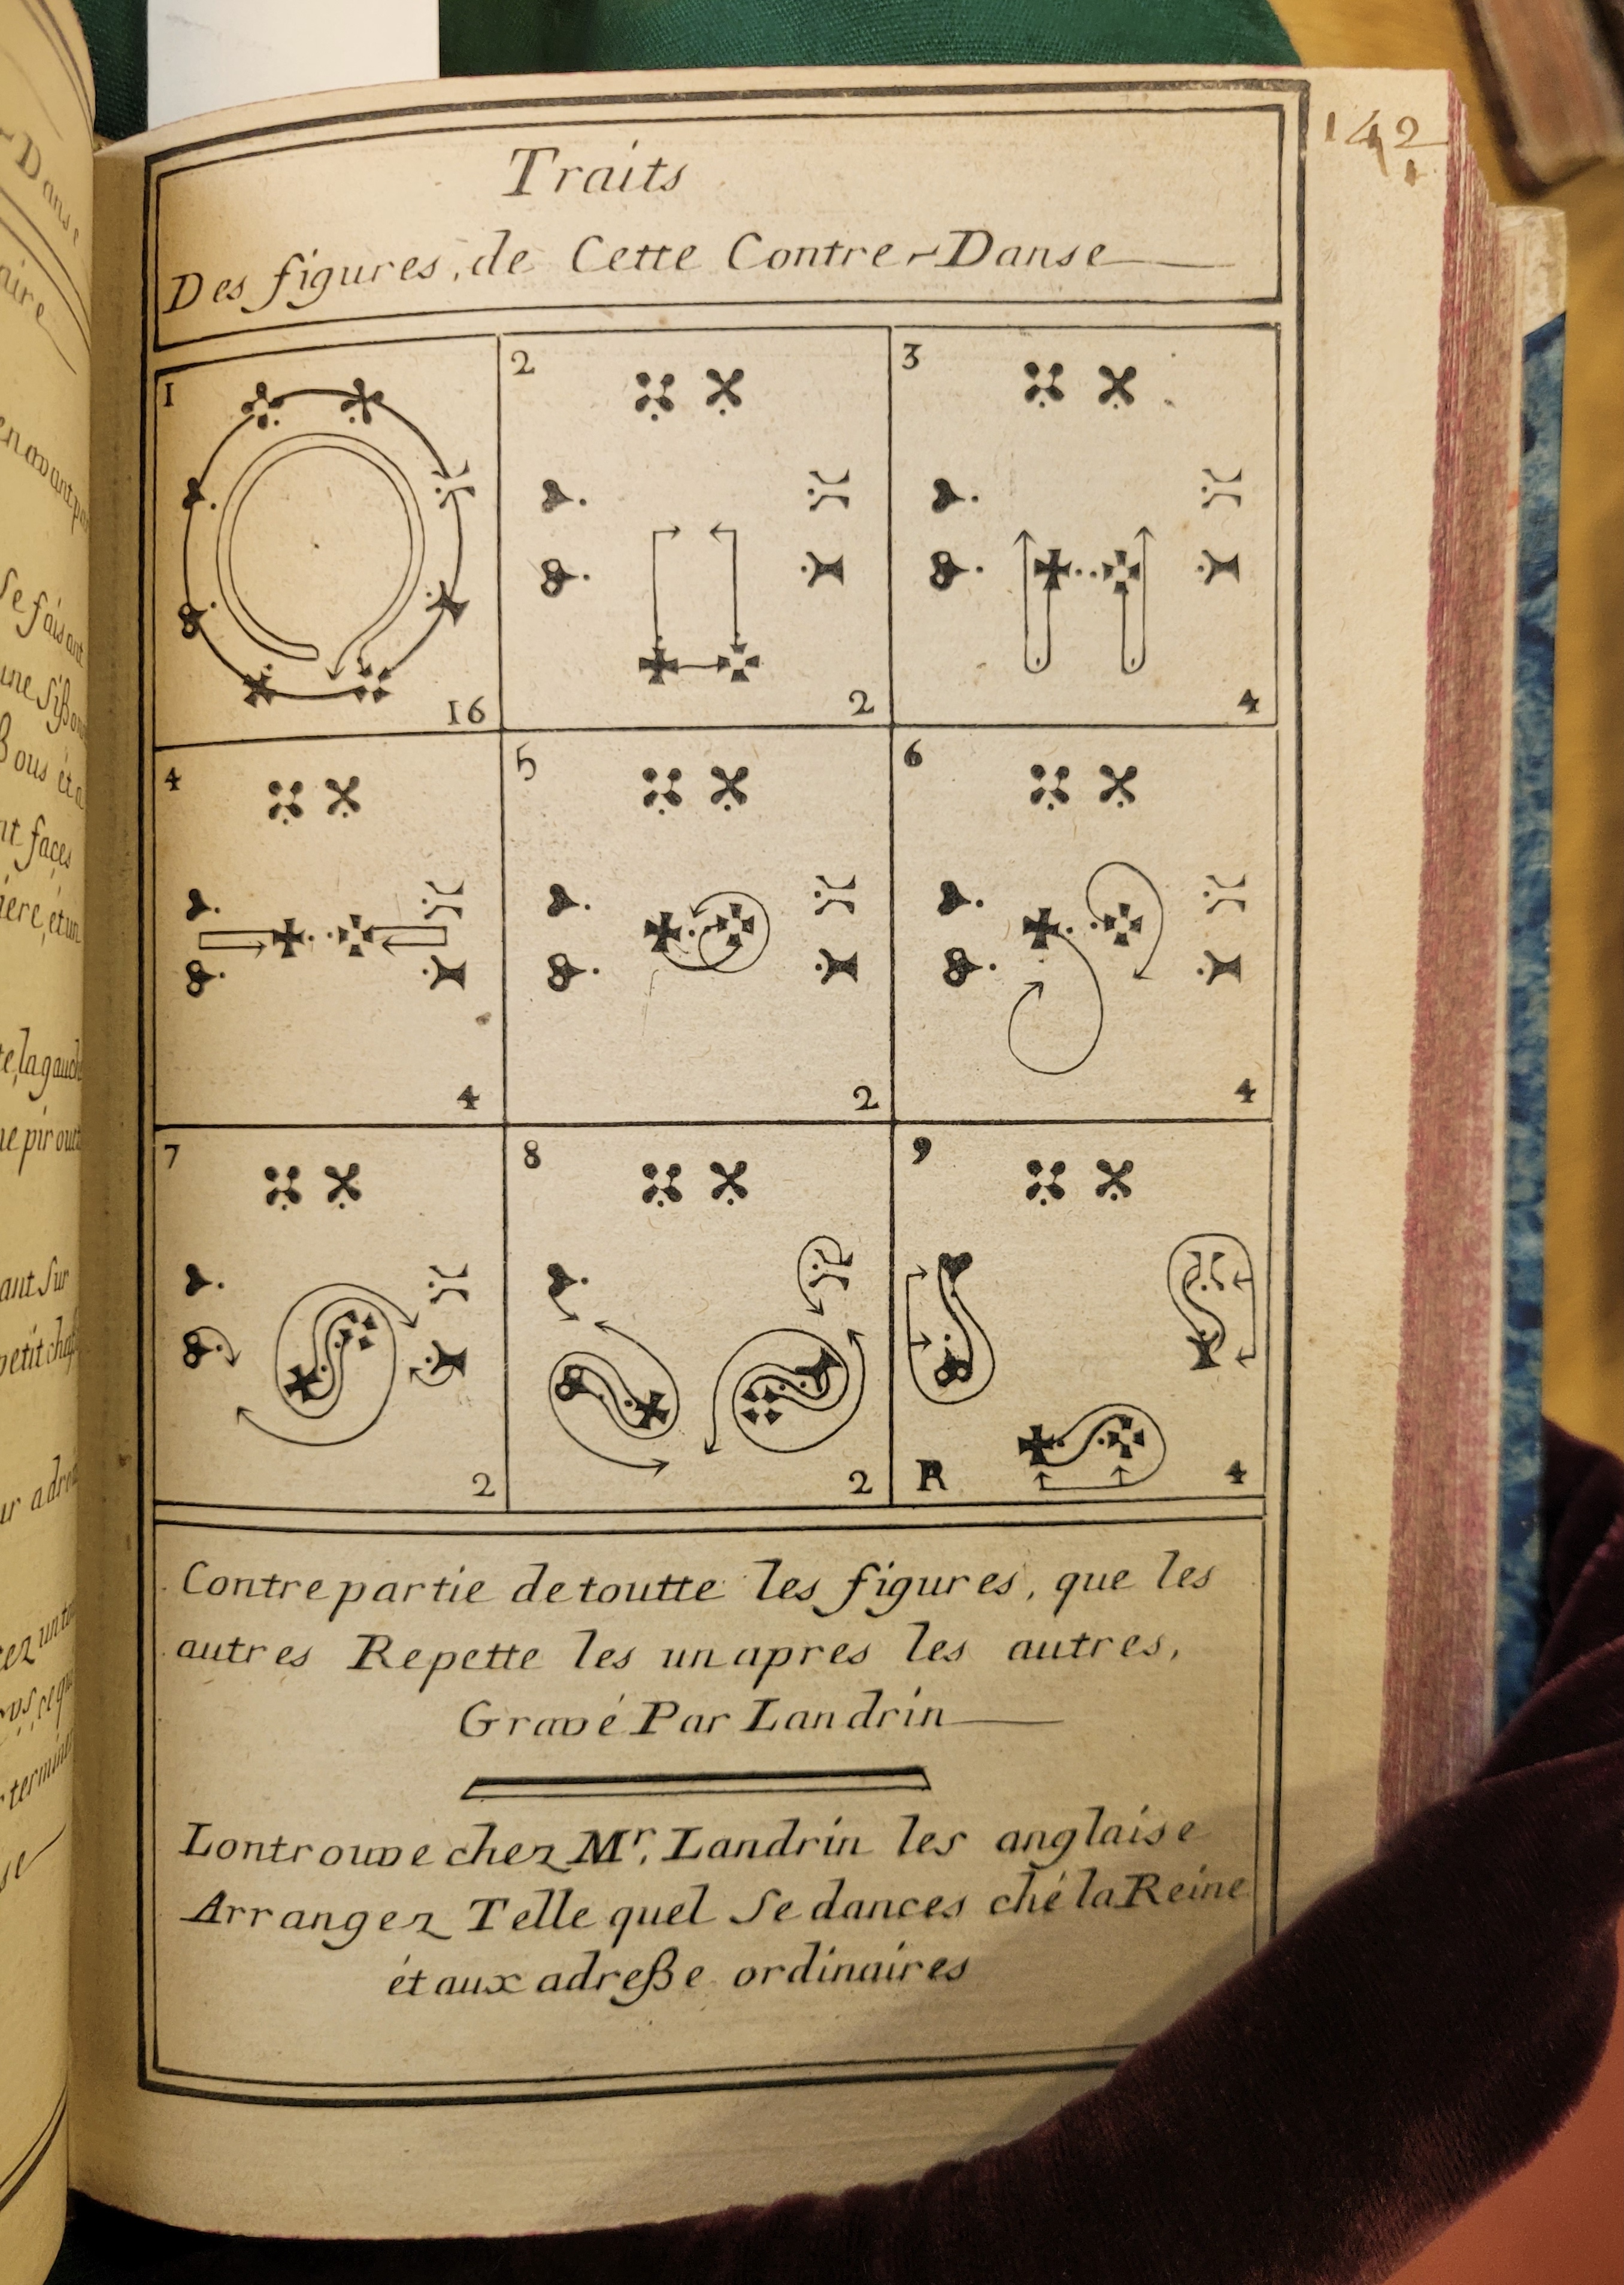 142
Traits
Des figures, de Cette Contre-Danse
1
16
2
2
3
4
4
4
5
2
6
4
7
2
8
2
9
R
4
Contre partie de toutte les figures, que les
autres Repette les un apres les autres,
Gravé Par Landrin
Lontrouve chez Mr. Landrin les anglaise
Arrangez Telle quel Se dances ché la Reine
ét aux adreße ordinaires